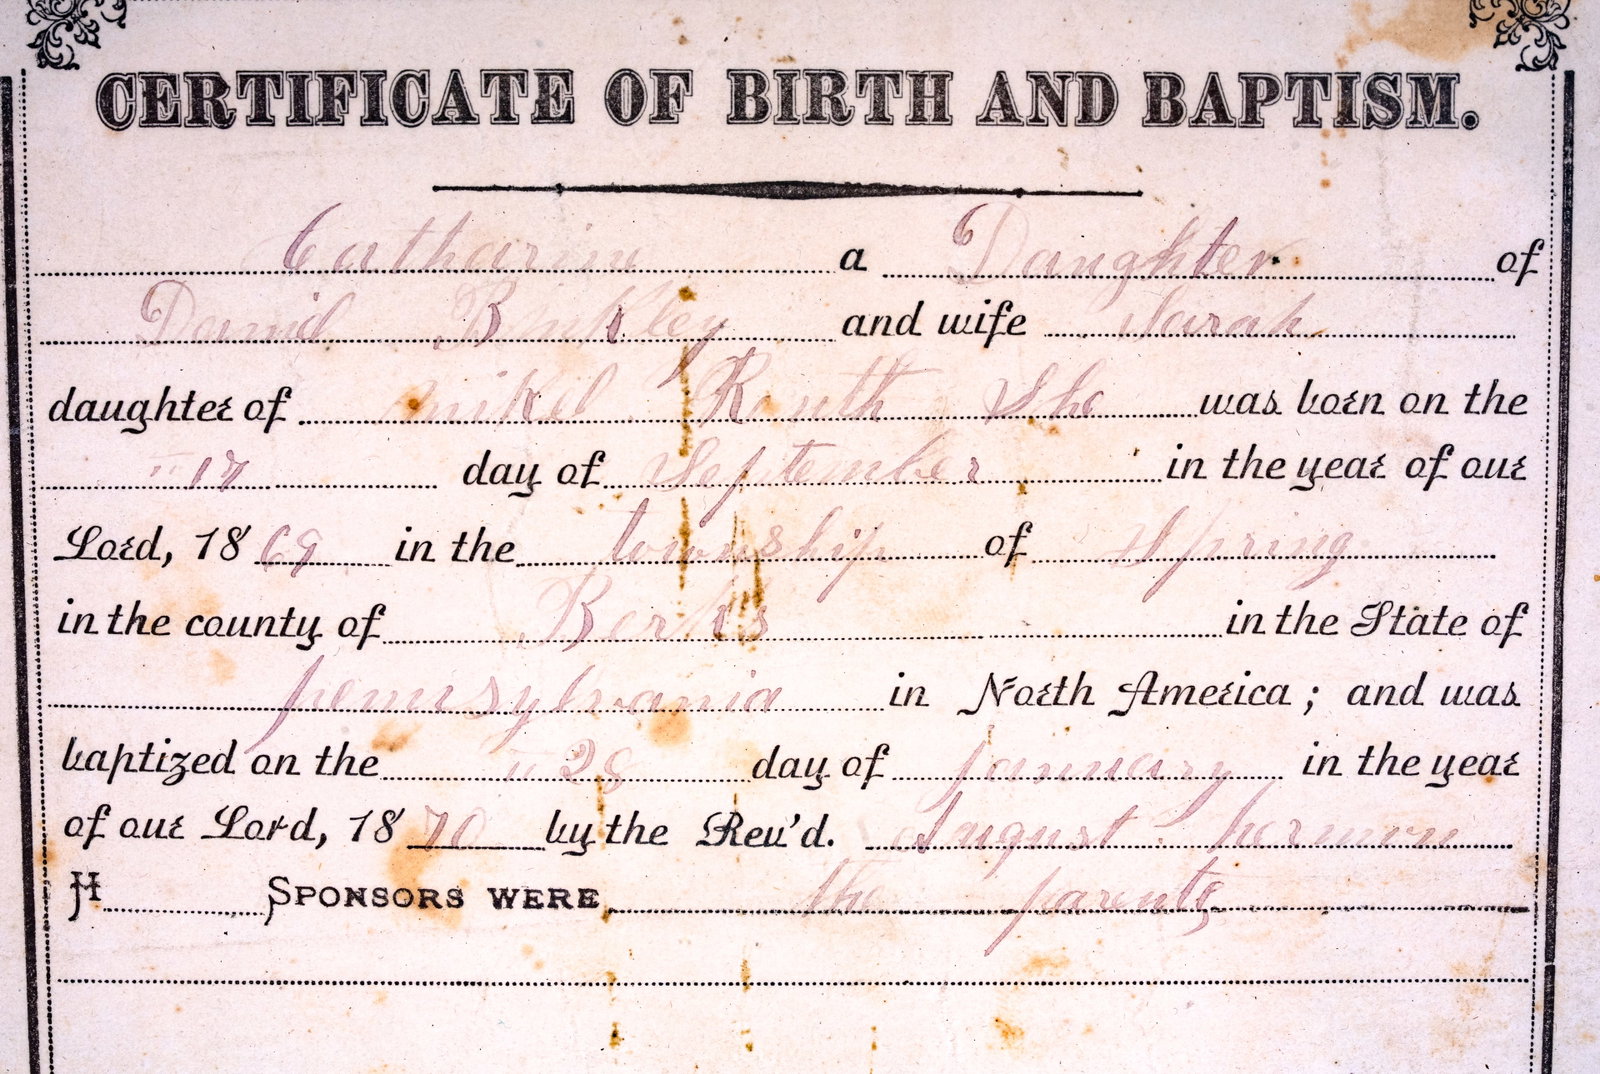 CERTIFICATE OF BIRTH AND BAPTISM.
Catharine a Daughter of
David Binkley and wife Sarah
daughter of mikel Ruth She was born on the
17 day of September in the year of our
Lord, 1869 in the township of Spring
in the county of Berks in the State of
pennsylvania in North America; and was
baptized on the 28 day of january in the year
of our Lord, 1870 by the Rev'd. August hermon
H SPONSORS WERE the parents